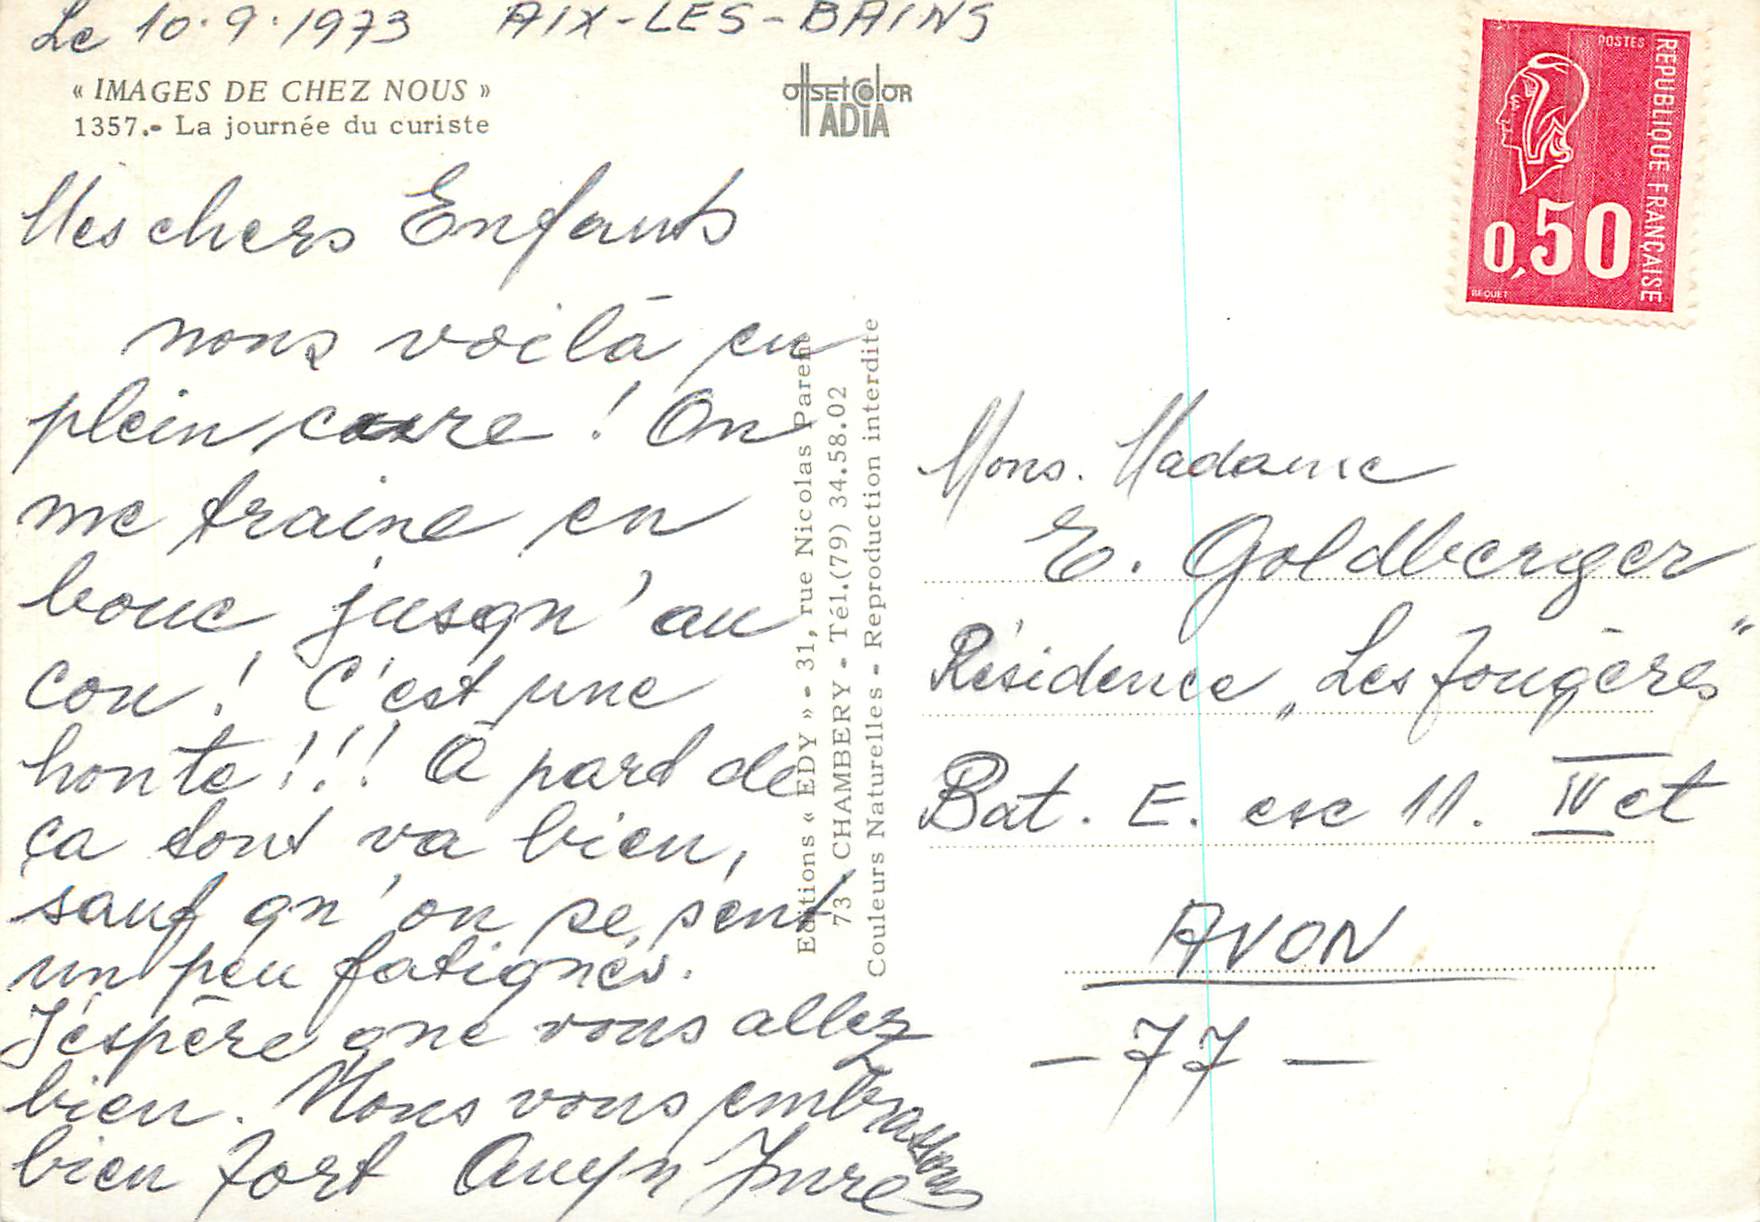 Le 10.9.1973 AIX-LES-BAINS
« IMAGES DE CHEZ NOUS »
1357.- La journée du curiste
OffsetColor
ADIA
Mes chers Enfants
nous voilà en
plein cure ! On
me traine en
boue jusqu'au
cou ! C'est une
honte !!! À part de
ça tout va bien,
sauf qu'on se sent
un peu fatignés.
J'éspère que vous allez
bien. Nous vous embrassons
bien fort Imre
Editions « EDY » - 31, rue Nicolas Parent
73 - CHAMBERY - Tél.(79) 34.58.02
Couleurs Naturelles - Reproduction interdite
POSTES
REPUBLIQUE FRANÇAISE
0,50
BEQUET
Mons. Madame
E. Goldberger
Résidence „Les Fougères"
Bat. E. esc 11. IV et
AVON
- 77 -